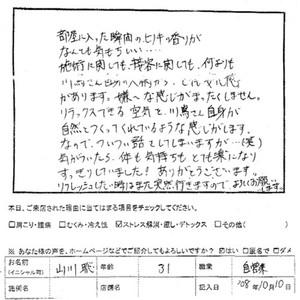 部屋に入った瞬間のヒノキの香りが
なんとも気もちいい・・・・
施術に関しても、接客に関しても、何よりも
川島さん自身の人柄から、
があります。嫌〜な感じがまったくしません。
リラックスできる空気を、川島さん自身が
自然とつくってくれているような感じがします。
なので、ついつい話をしてしまいますが…(笑)
気がついたら、体も気持ちもとても楽になり、
すっきりしていました!ありがとうございます。
リフレッシュしたい時はまた突然行きますので、よろしくお願いします。
本日、ご来店された理由に当てはまる項目をチェックしてください。
□肩こり・腰痛 □むくみ・冷え性 ☑ストレス解消・癒し・デトックス □その他( )
※あなた様の声を、ホームページなどでご紹介してもよろしいですか? ☑はい □匿名で □ダメ
お名前 (イニシャル可) 山川 聡 年齢 31 職業 自営業
施術名 店舗名 '08年10月10日